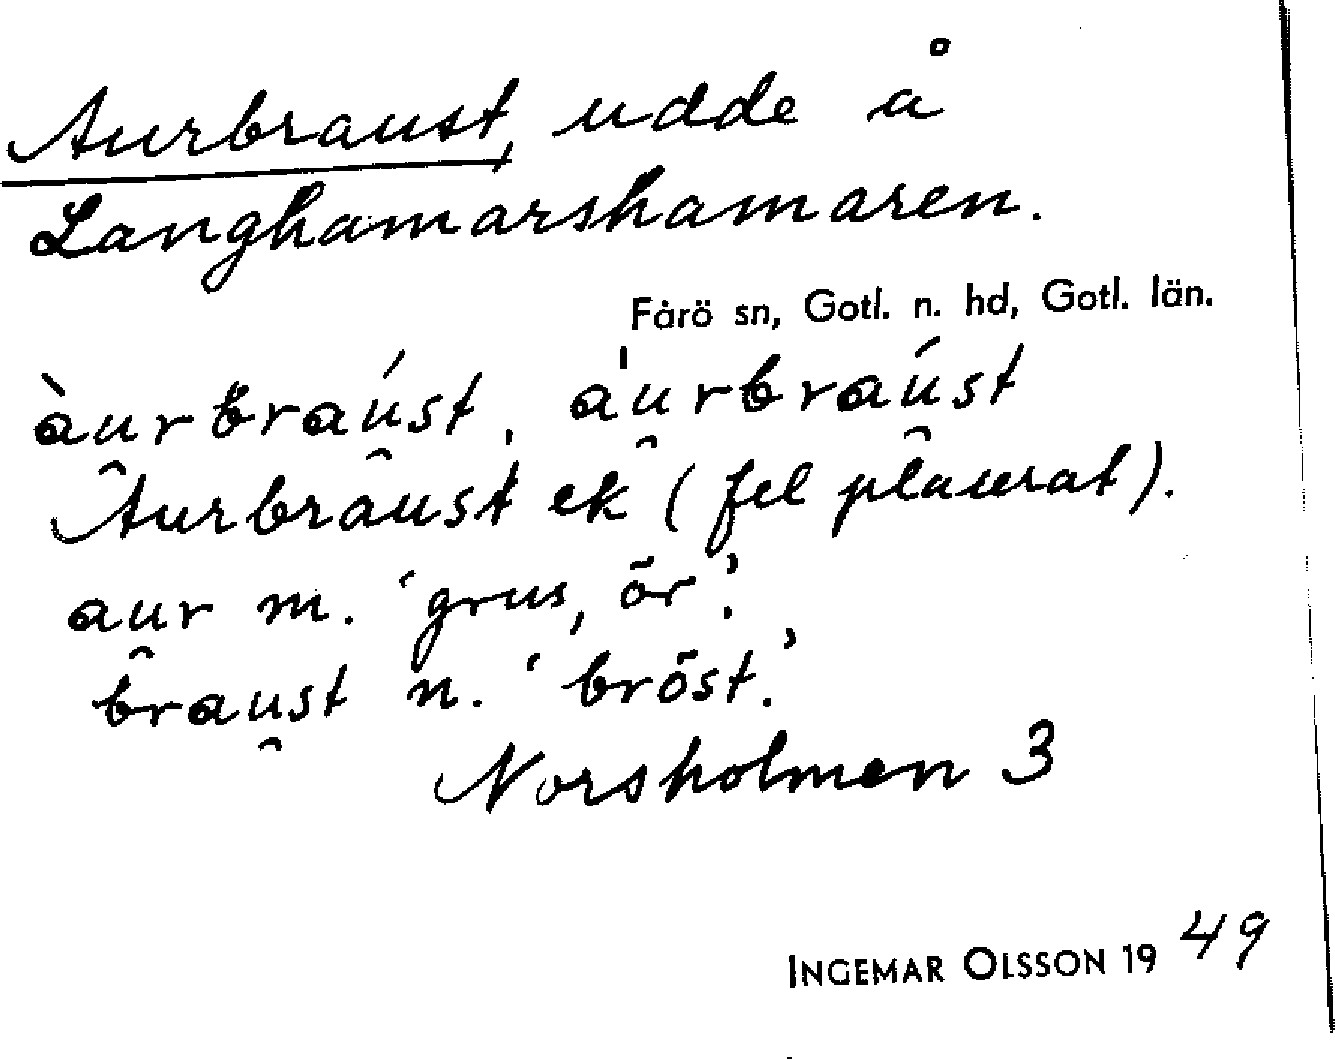 Aurbraust, udde å
Langhamarshamaren.
Fårö sn, Gotl. n. hd, Gotl. län.
àurbraúst, a̍urbraúst
Aurbraust ek (fel placerat).
aur m. ‘grus, ör’.
braust n. ‘bröst.’
Norsholmen 3
INGEMAR OLSSON 19 49